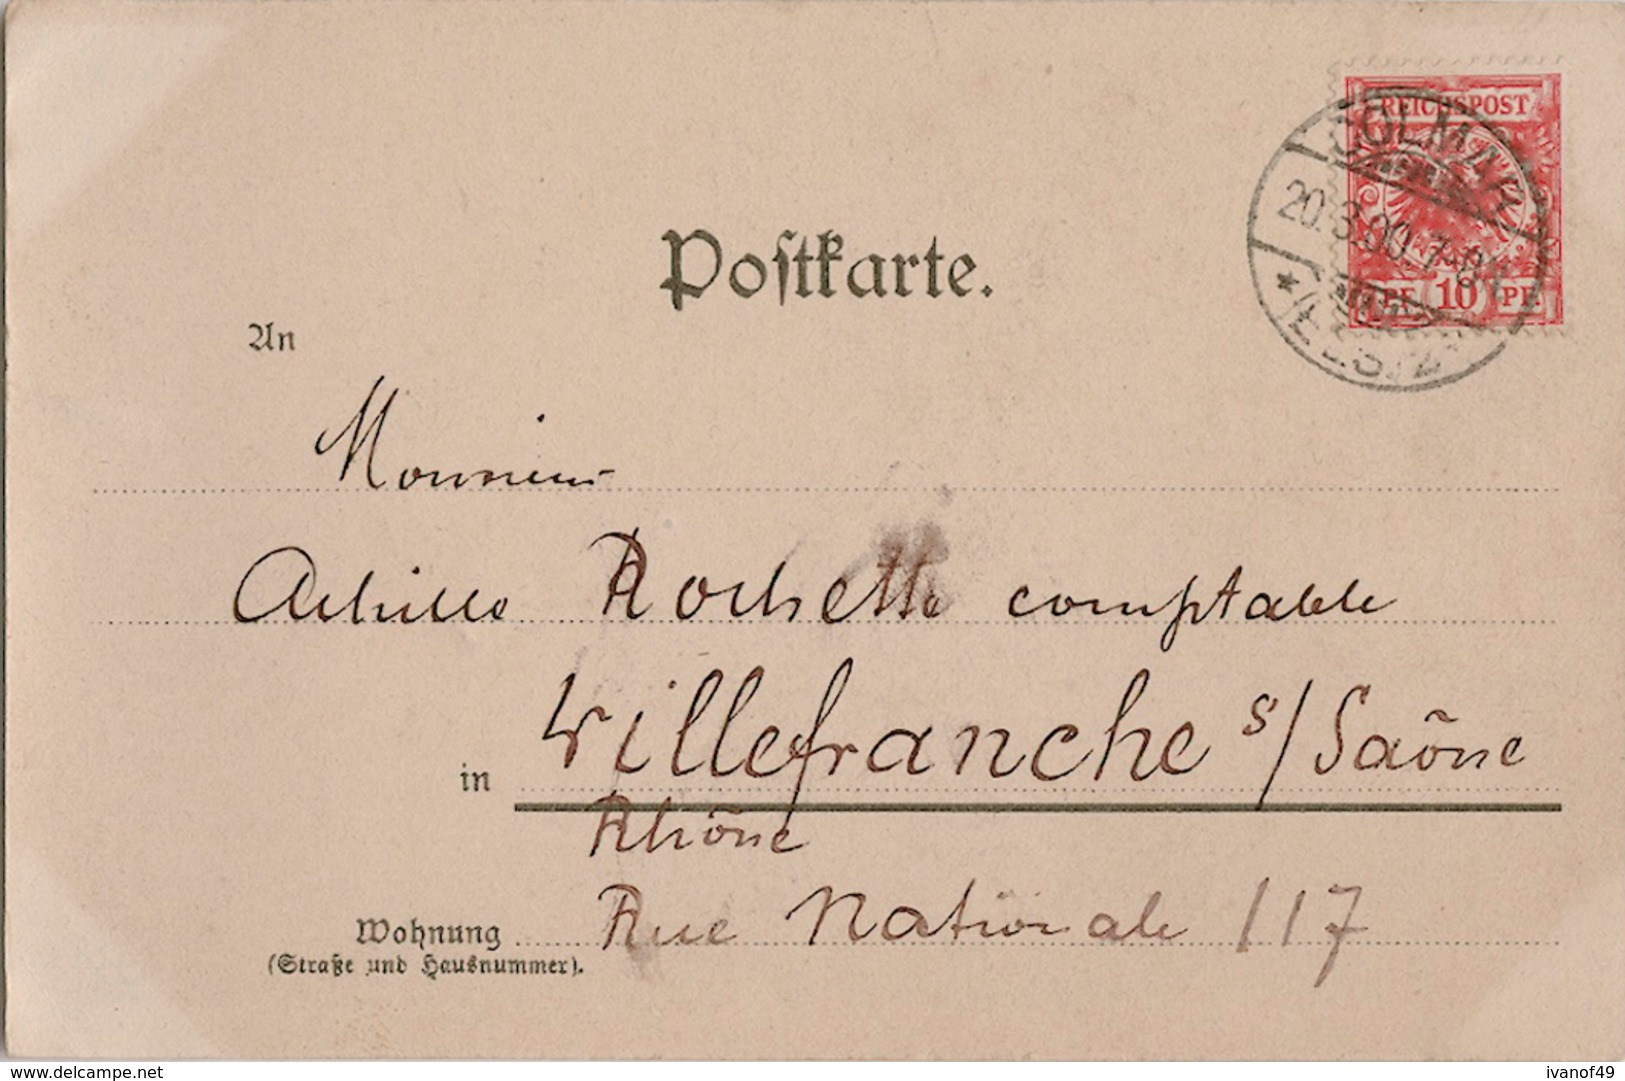 REICHSPOST
COLMAR
20.3.00.7-8V
* (ELS.) Z
PF 10 PF.
Poſtkarte.
An
Monsieur
Achille Rochette comptable
in Villefranche s/Saône
Rhône
Wohnung Rue Nationale 117
(Straße und Hausnummer).
www.delcampe.net
ivanof49